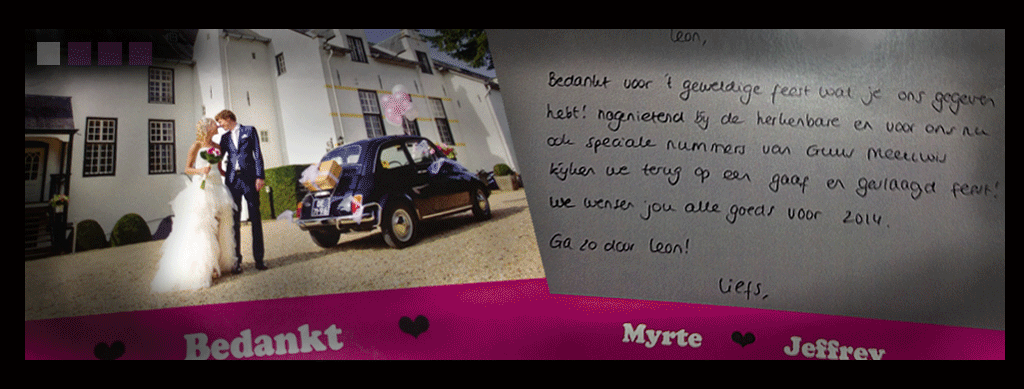 Leon,
Bedankt voor 't geweldige feest wat je ons gegeven
hebt! nagenietend bij de herkenbare en voor ons nu
ook speciale nummers van Guus Meeuwis
kijken we terug op een gaaf en geslaagd feest!
We wensen jou alle goeds voor 2014.
Ga zo door Leon!
Liefs,
Bedankt
Myrte
Jeffrey